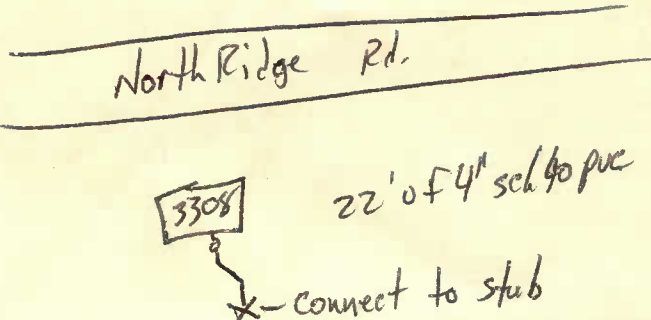 North Ridge Rd.
22' of 4" sch 40 pvc
3308
connect to stub